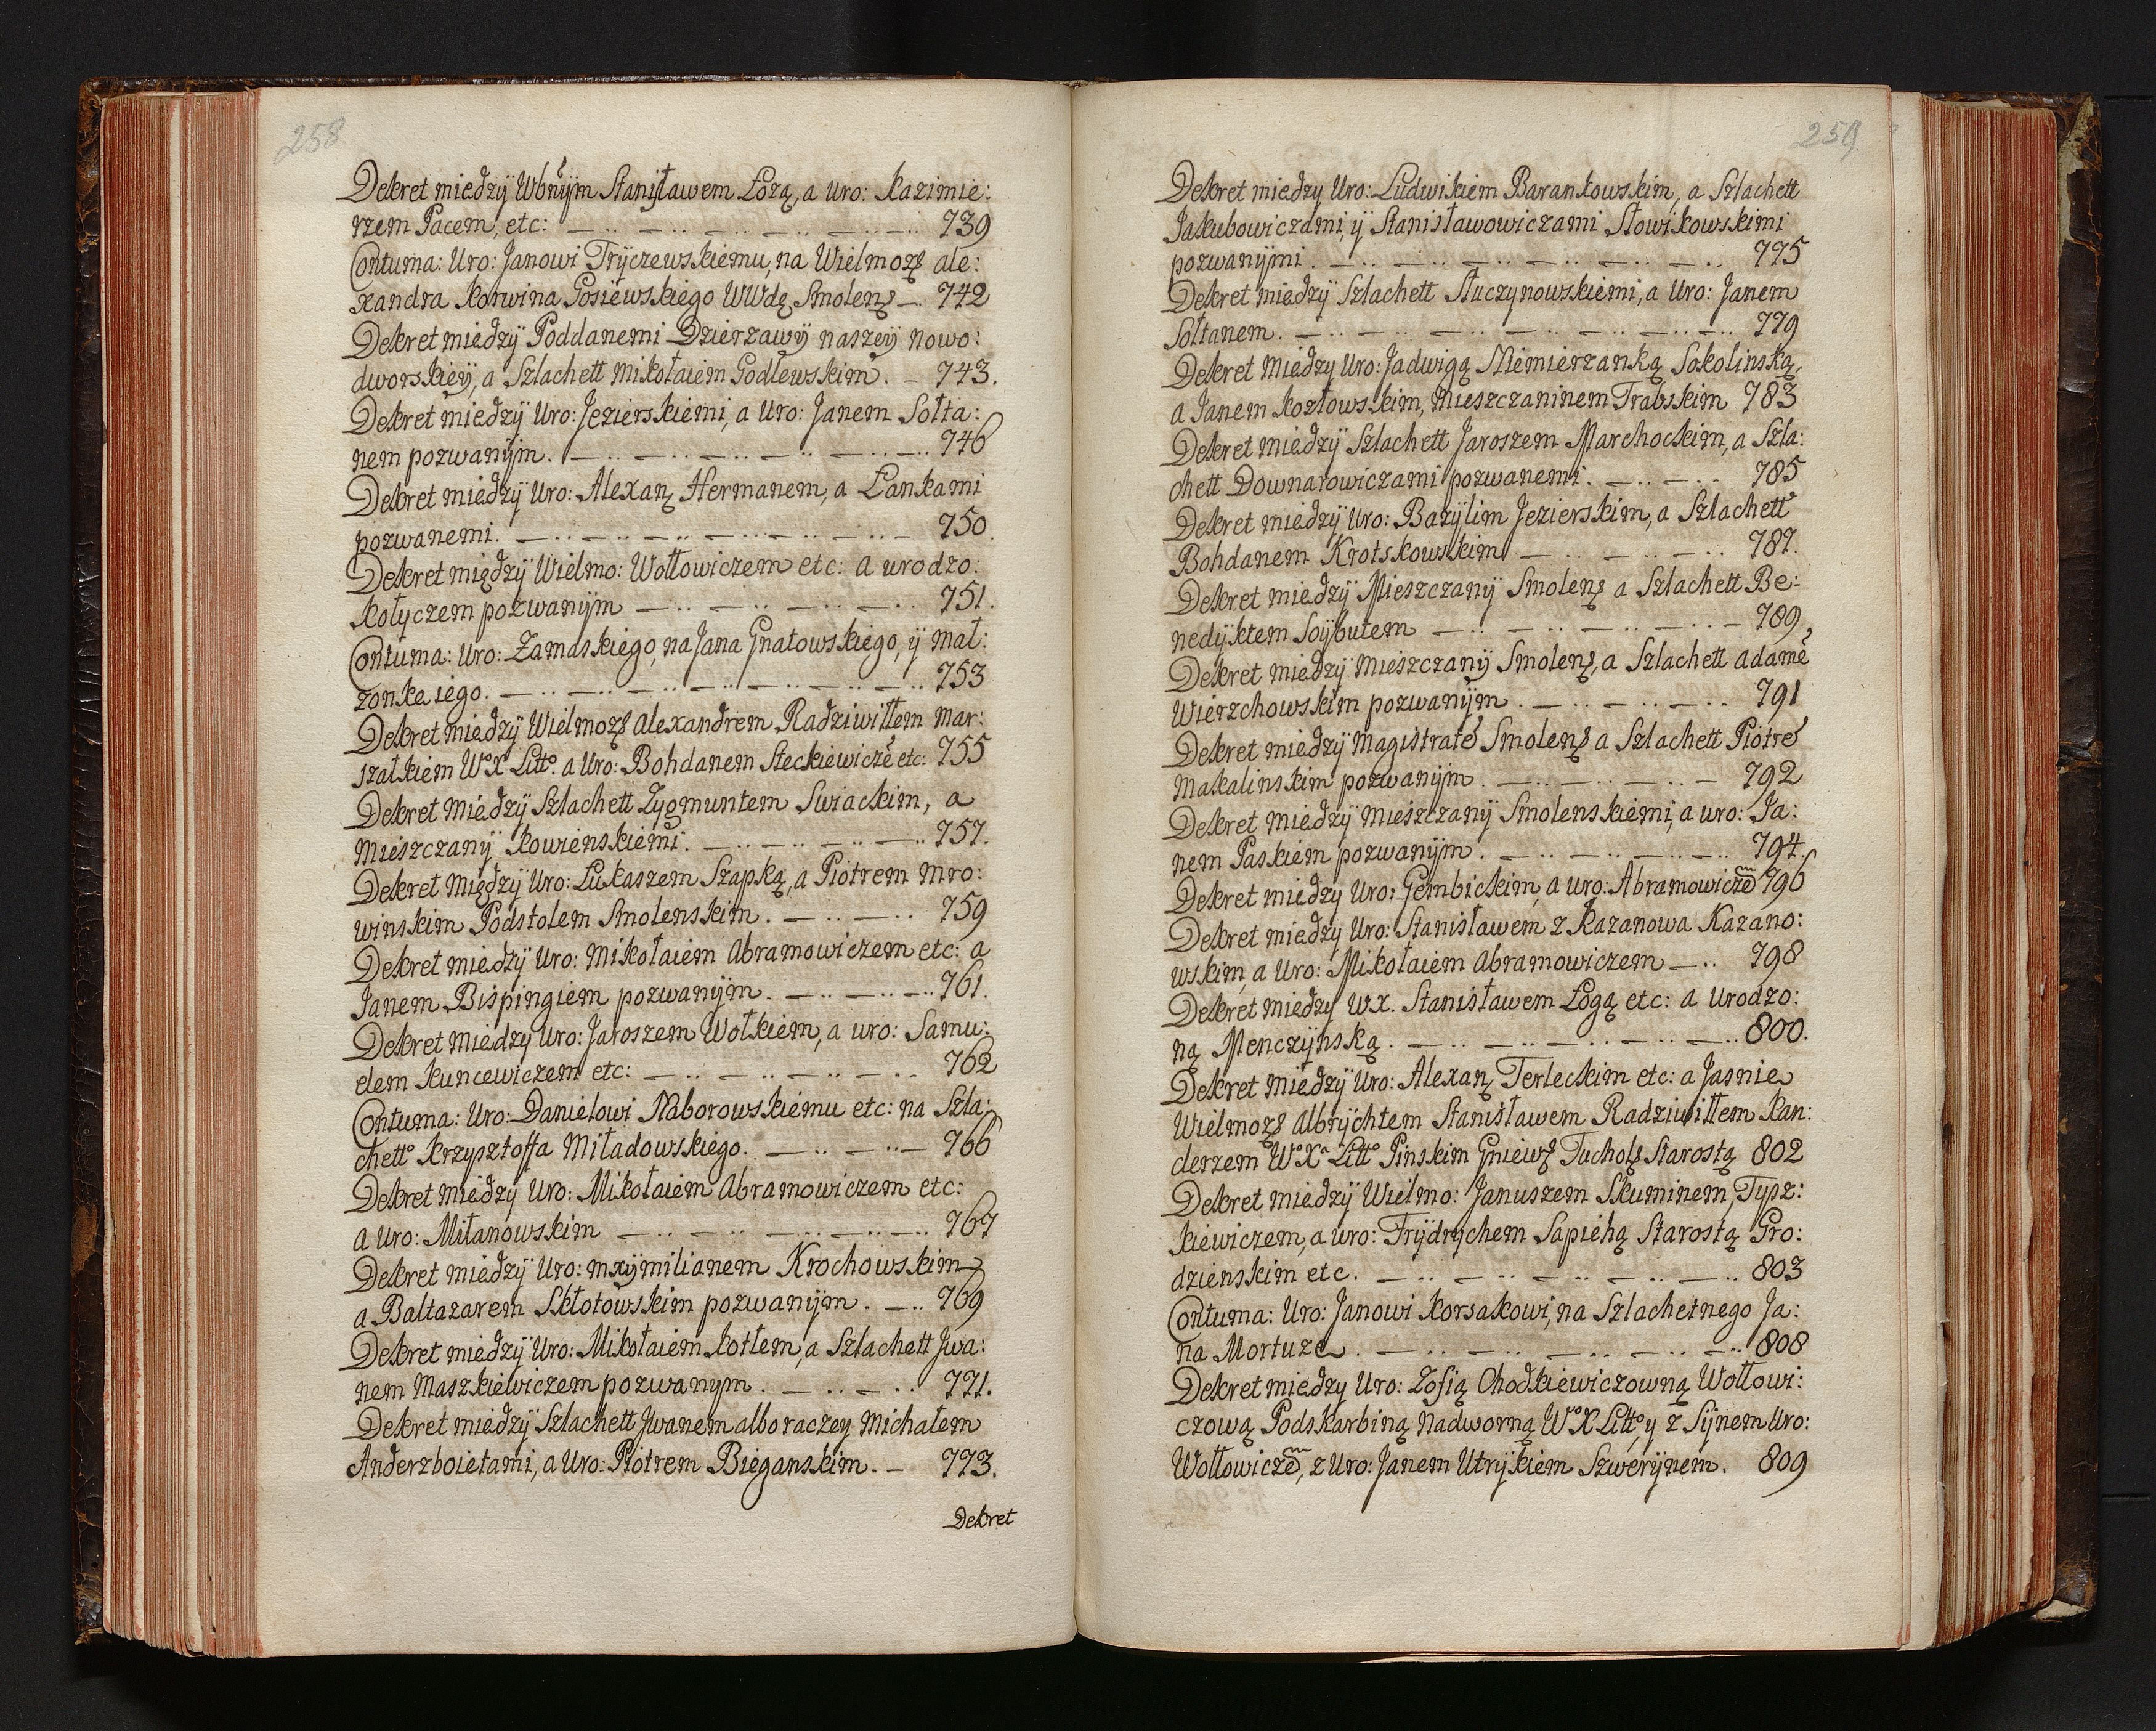 258
Dekret miedzÿ Wbnÿm Stanisławem Łozą, a Uro: Kazimie:
rzem Pacem, etc: 739
Contuma: Uro: Janowi Trÿczewskiemu, na Wielmoz ale:
xandra Korwina Gosiewskiego WWdę Smolen 742
Dekret miedzÿ Poddanemi Dzierzawÿ naszeÿ nowo:
dworskieÿ, a Szlachett mikołaiem Godlewskim. 743.
Dekret miedzÿ Uro: Jezierskiemi, a Uro: Janem Sołta:
nem pozwanÿm. 746
Dekret miedzÿ Uro: Alexan Hermanem, a Łankami
pozwanemi. 750.
Dekret między Wielmo: Wołłowiczem etc: a urodzo:
kołyczem pozwanÿm 751.
Contuma: Uro: Zamaskiego, na Jana Gnatowskiego, ÿ mał:
zonka iego. 753
Dekret miedzÿ Wielmoz alexandrem Radziwiłłem mar:
szałkiem WoXa Litto. a Uro: Bohdanem Steckiewiczē etc: 755
Dekret miedzÿ Szlachett Zygmuntem Swiackim, a
mieszczanÿ kowienskiemi. 757.
Dekret międzÿ Uro: Łukaszem Szapką, a Piotrem mro:
winskim Podstolem Smolenskim. 759
Dekret miedzÿ Uro: Mikołaiem Abramowiczem etc: a
Janem Bispingiem pozwanÿm. 761.
Dekret miedzy Uro: Jaroszem Wołkiem, a uro: Samu:
elem kuncewiczem etc: 762
Contuma: Uro: Danielowi Naborowskiemu etc: na Szla:
chetto Krzysztoffa Miładowskiego. 766
Dekret miedzy Uro: Mikołaiem Abramowiczem etc:
a Uro: Miłanowskim 767
Dekret miedzÿ Uro: mxÿmilianem Krochowskim
a Baltazarem Skłotowskim pozwanÿm. 769
Dekret miedzÿ Uro: Mikołaiem kotłem, a Szlachett Jwa:
nem Maszkiewiczem pozwanym. 771.
Dekret miedzÿ Szlachett Jwanem albo raczey michałem
Anderzboietami, a Uro: Piotrem Bieganskim. 773.
Dekret
259
Dekret miedzy Uro: Ludwikiem Barankowskim, a Szlachett
Jakubowiczami, ÿ Stanisławowiczami Słowikowskimi
pozwanÿmi. 775
Dekret miedzÿ Szlachett Stuczynowskiemi, a Uro: Janem
Sołtanem. 779
Dekret miedzy Uro: Jadwigą Niemierzanką Sokolinską,
a Janem kozłowskim, mieszczaninem Trabskim 783
Dekret miedzÿ Szlachett Jaroszem Marchockim, a Szla:
chett Downarowiczami pozwanemi. 785
Dekret miedzÿ Uro: Bazÿlim Jezierskim, a Szlachett
Bohdanem Krotskowskim 787.
Dekret miedzÿ Mieszczanÿ Smolen a Szlachett Be:
nedÿktem Soÿbutem 789.
Dekret miedzÿ mieszczanÿ Smolen, a Szlachett adamē
Wierzchowskim pozwanÿm. 791
Dekret miedzÿ magistratē Smolen a Szlachett Piotrē
Makalinskim pozwanÿm. 792
Dekret miedzÿ mieszczanÿ Smolenskiemi, a uro: Ja:
nem Paskiem pozwanÿm. 794.
Dekret miedzy Uro: Gembickim, a uro: Abramowiczē 796
Dekret miedzy Uro: Stanisławem z Kazanowa Kazano:
wskim, a Uro: Mikołaiem Abramowiczem 798
Dekret miedzy Wx. Stanisławem Łogą etc: a Urodzo:
ną Menczÿnską. 800.
Dekret miedzÿ Uro: Alexan Terleckim etc: a Jasnie
Wielmoz Albrÿchtem Stanisławem Radziwiłłem Kan:
clerzem WoXa Litto Pinskim Gniew Tuchol Starostą 802
Dekret miedzÿ Wielmo: Januszem Skuminem, Tysz:
kiewiczem, a uro: Frÿdrÿchem Sapiehą Starostą Gro:
dzienskim etc. 803
Contuma: Uro: Janowi Korsakowi, na Szlachetnego Ja:
na Mortuze. 808
Dekret miedzy Uro: Zofią Chodkiewiczowną Wołłowi:
czową Podskarbiną nadworną WoX Litto, y z Sÿnem Uro:
Wołłowiczē, z Uro: Janem Utrÿkiem Szwerÿnem. 809